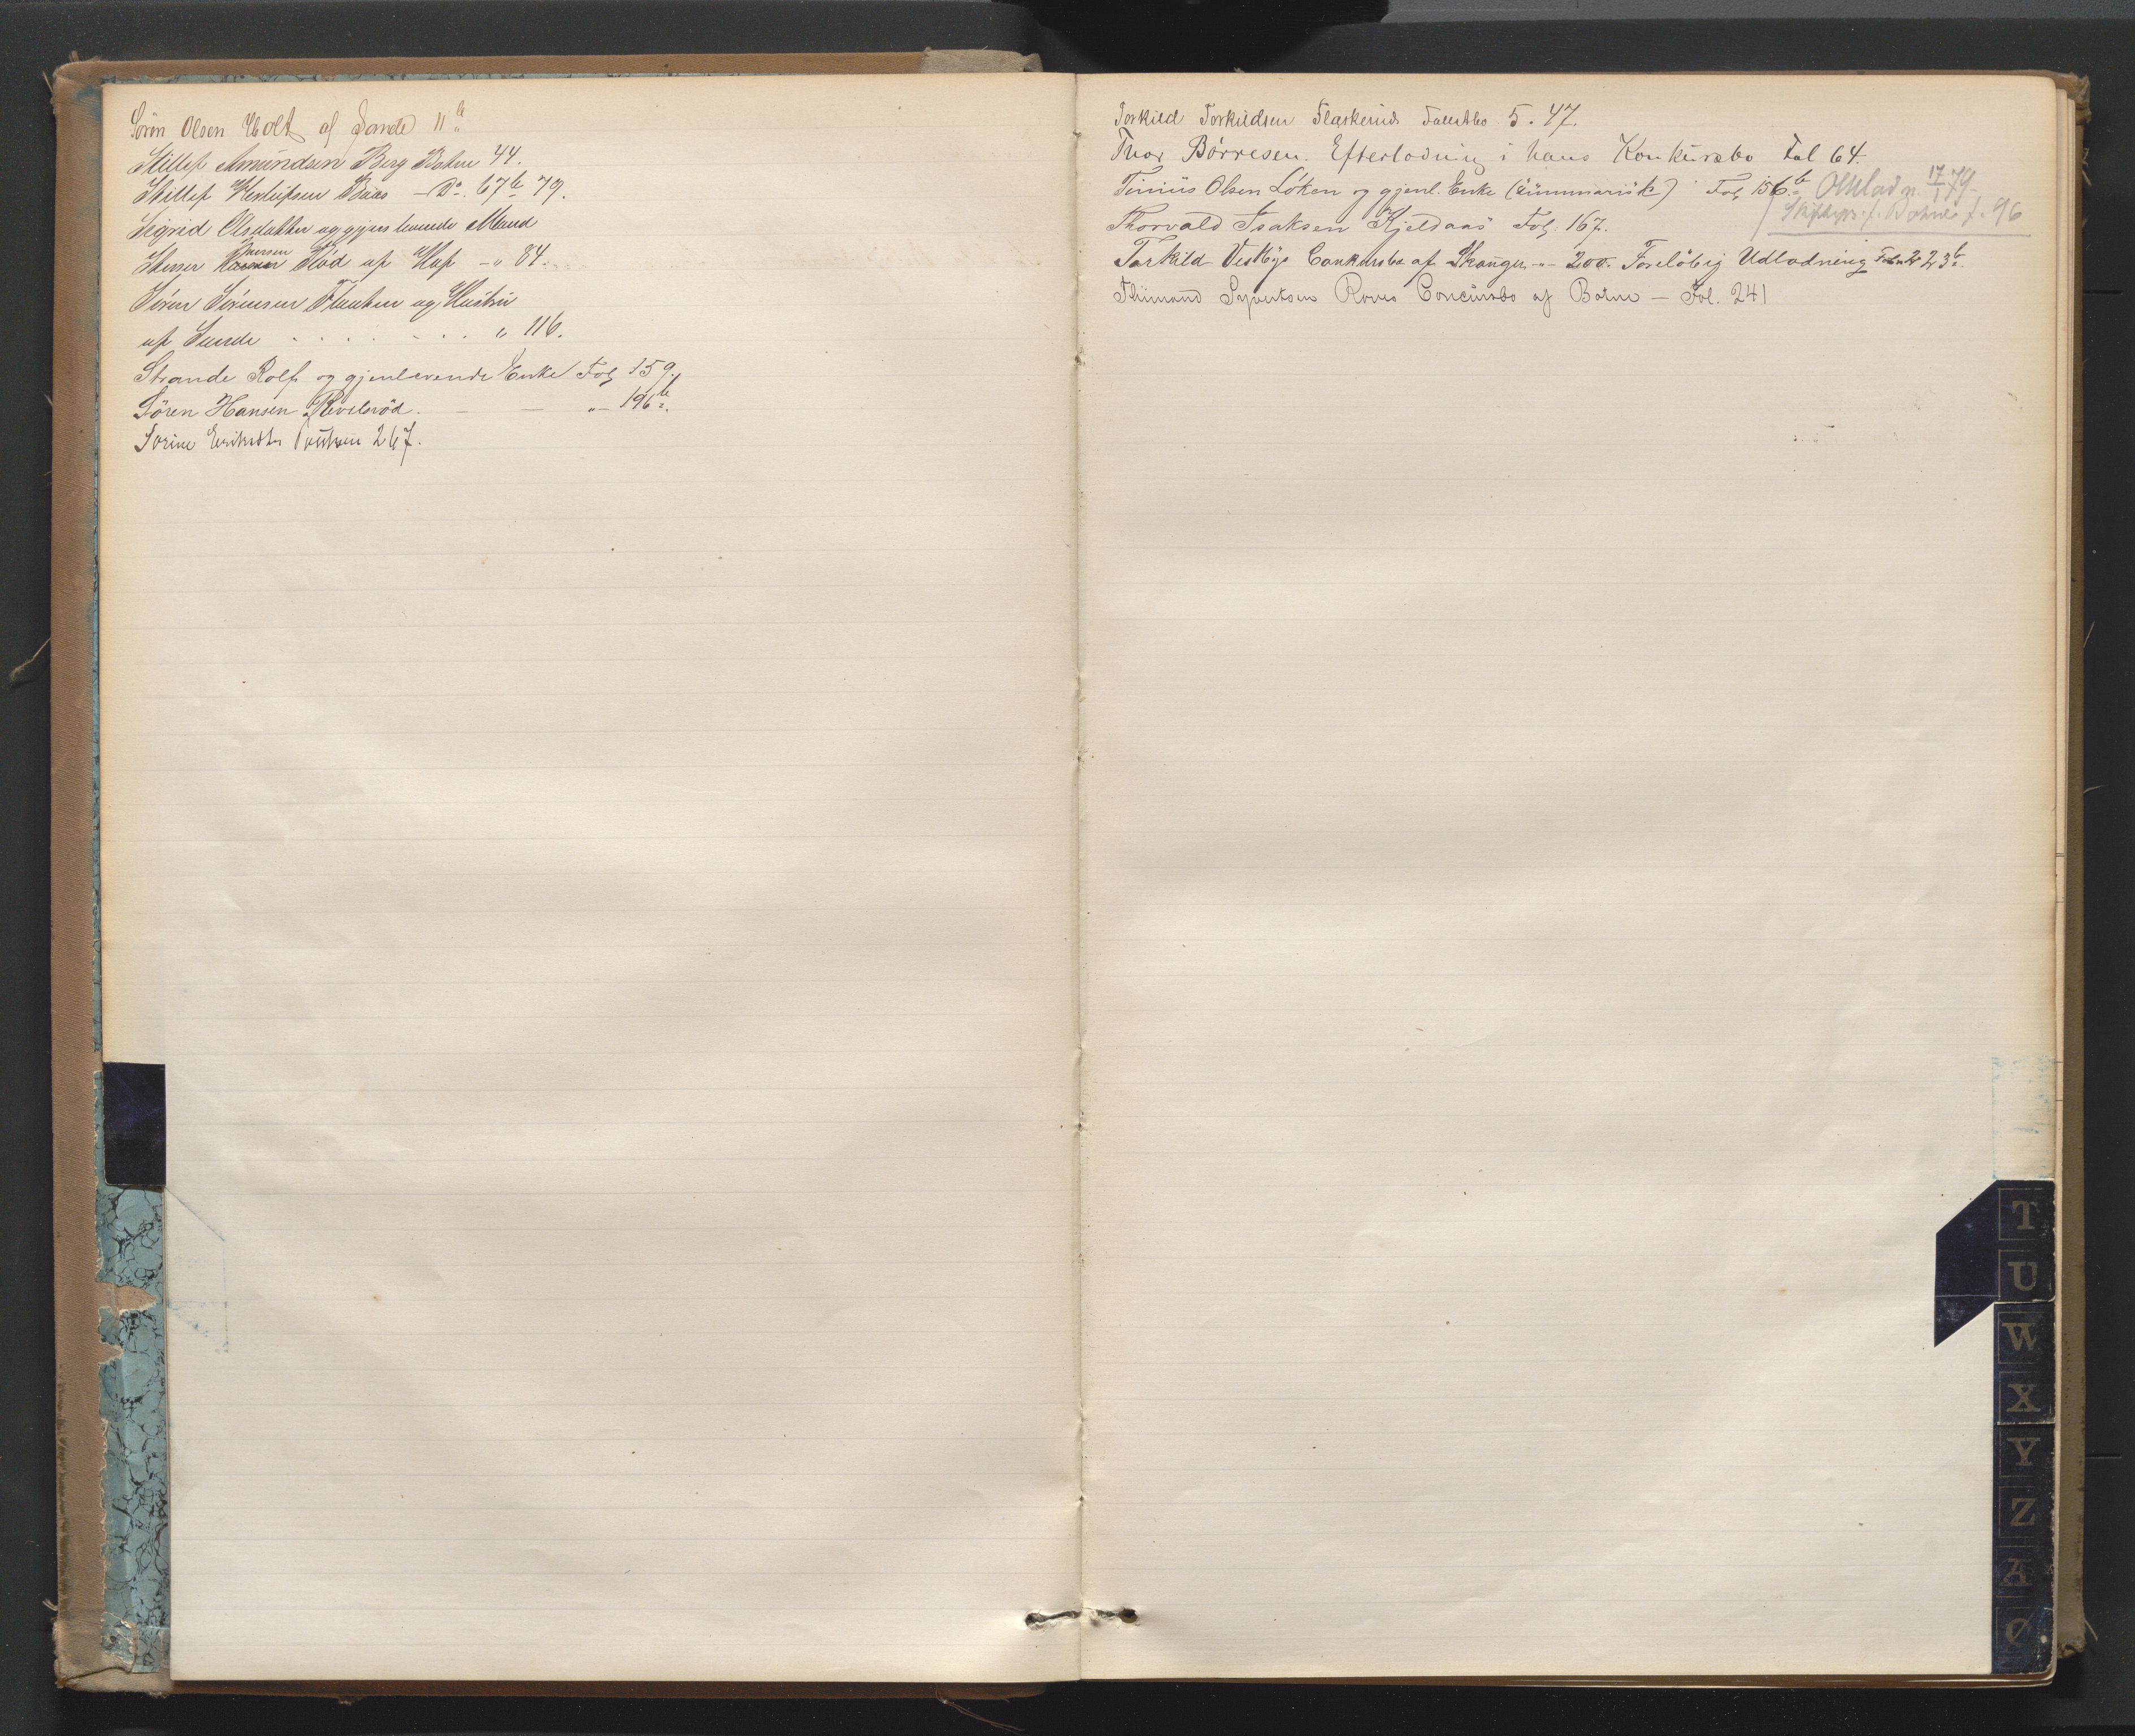 Sören Olsen Holt af Sande 11 b
Hellef Amundsen Berg Botne 44.
Hellef Do. 67 b 79.
Sigrid Olsdatter og gjenlevende Mand
Iversen
Röd af Hof - " 84.
Sören Sörensen og Hustru
af Sande . . . . . . " 116.
Strande Rolf og gjenlevende Enke Fol 159.
Sören Hansen Revelsröd. — — " — 196 b
Sorine 267.
Torkild Torkildsen Flaskerud Fallitbo 5. 47.
Thor Börresen. Efterlodning i hans Konkursbo Fol 64.
Tinius Olsen Löken og gjenl. Enke (summarisk) Fol 156 b 17/1 79
Skiftepr. f. Botne f. 96
Thorvald Isaksen Kjeldaas Fol. 167.
Torkild Vestby Conkursbo af Skoger - " - 200. Forelöbig Udlodning Fol 223 b
Syvertsen Concursbo af Botne — Fol. 241
T
U
W
X
Y
Z
Æ
Ø